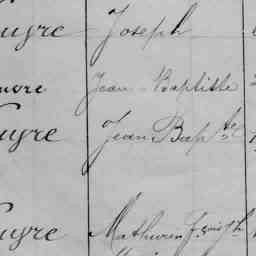 uyre Joseph
uvre Jean Baptiste
uyre Jean Bap^te
uyre Mathurin